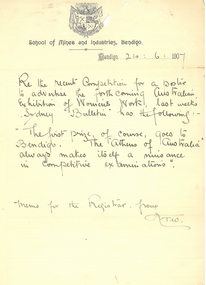 School of Mines and Industries, Bendigo.
Bendigo, 24 : 6 : 1907
Re the recent Competition for a poster
to advertise the forthcoming Australian
Exhibition of Women's Work, last week's
"Sydney Bulletin" has the following :-
"The first prize, of course, goes to
Bendigo. The "Athens of Australia"
always makes itself a nuisance
in competitive examinations".
Memo for the Registrar from